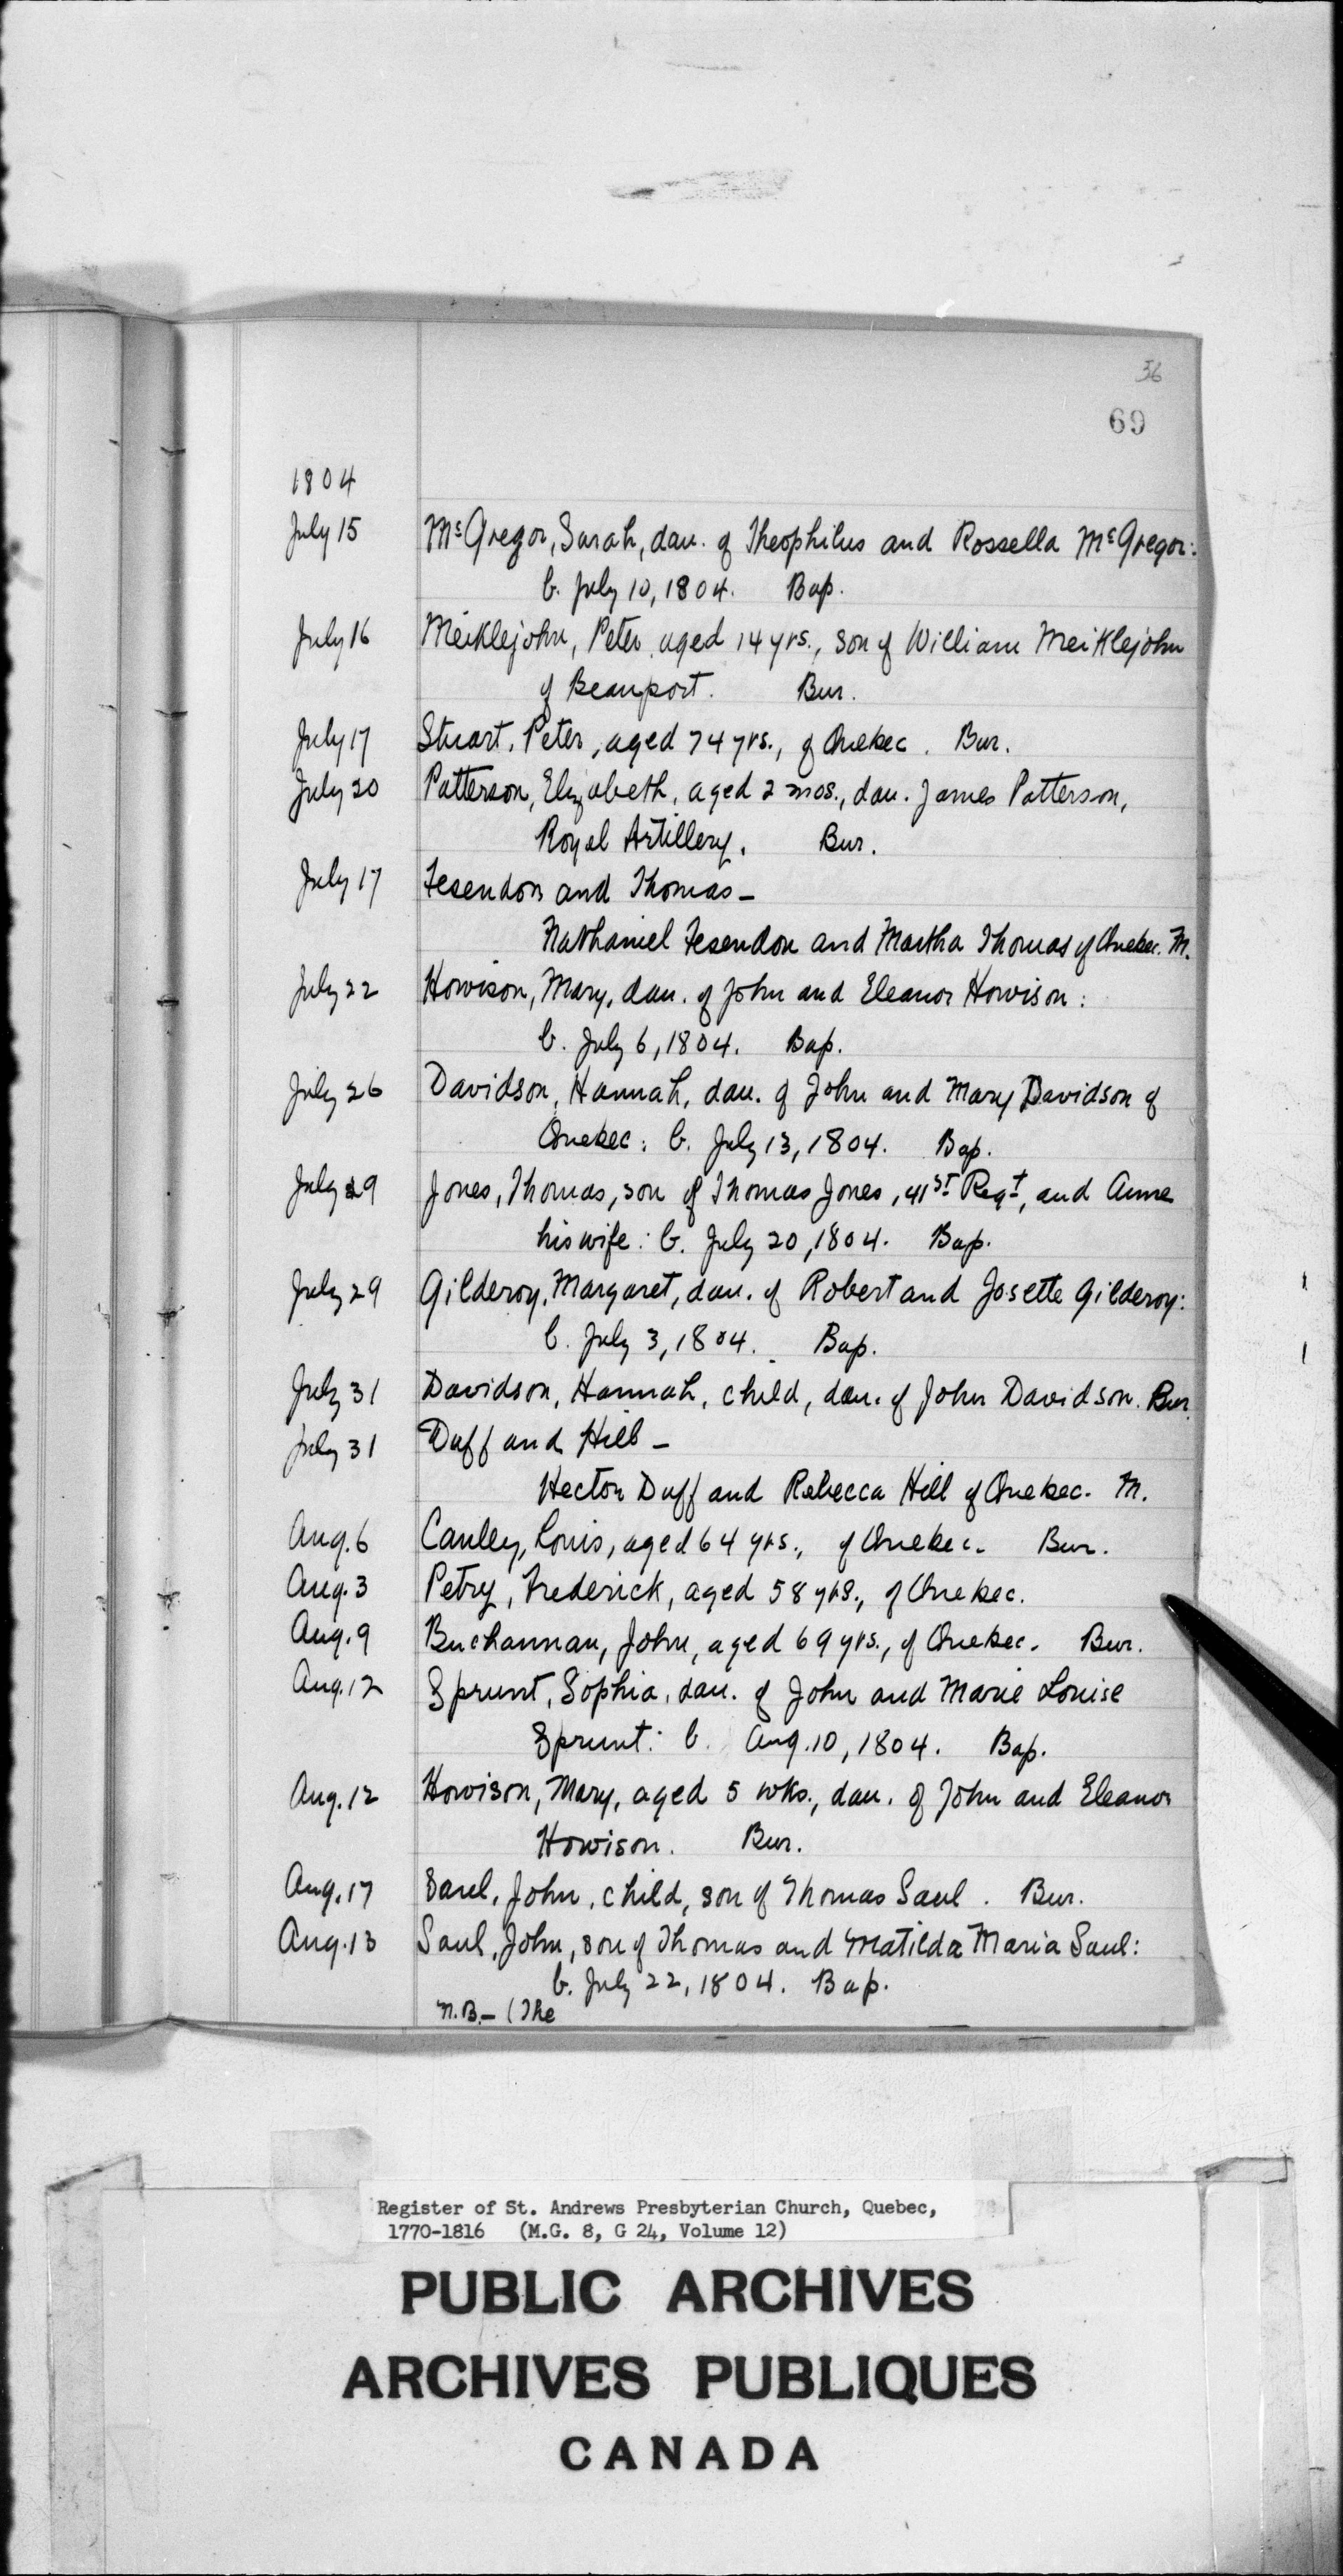 36
69
1804
July 15 McGregor, Sarah, dau. of Theophilus and Rossella McGregor:
b. July 10, 1804. Bap.
July 16 Meiklejohn, Peter, aged 14 yrs., son of William Meiklejohn
of Beauport. Bur.
July 17 Stuart, Peter, aged 74 yrs., of Quebec. Bur.
July 20 Patterson, Elizabeth, aged 2 mos., dau. James Patterson,
Royal Artillery. Bur.
July 17 Fesendon and Thomas —
Nathaniel Fesendon and Martha Thomas of Quebec. M.
July 22 Howison, Mary, dau. of John and Eleanor Howison:
b. July 6, 1804. Bap.
July 26 Davidson, Hannah, dau. of John and Mary Davidson of
Quebec: b. July 13, 1804. Bap.
July 29 Jones, Thomas, son of Thomas Jones, 41st Regt, and Anne
his wife: b. July 20, 1804. Bap.
July 29 Gilderoy, Margaret, dau. of Robert and Josette Gilderoy:
b. July 3, 1804. Bap.
July 31 Davidson, Hannah, child, dau. of John Davidson. Bur.
July 31 Duff and Hill —
Hector Duff and Rebecca Hill of Quebec. M.
Aug. 6 Cauley, Louis, aged 64 yrs., of Quebec. Bur.
Aug. 3 Petry, Frederick, aged 58 yrs., of Quebec.
Aug. 9 Buchannan, John, aged 69 yrs., of Quebec. Bur.
Aug. 12 Sprunt, Sophia, dau. of John and Marie Louise
Sprunt: b. Aug. 10, 1804. Bap.
Aug. 12 Howison, Mary, aged 5 wks., dau. of John and Eleanor
Howison. Bur.
Aug. 17 Saul, John, child, son of Thomas Saul. Bur.
Aug. 13 Saul, John, son of Thomas and Matilda Maria Saul:
b. July 22, 1804. Bap.
N.B. — (The
Register of St. Andrews Presbyterian Church, Quebec,
1770-1816 (M.G. 8, G 24, Volume 12)
PUBLIC ARCHIVES
ARCHIVES PUBLIQUES
CANADA